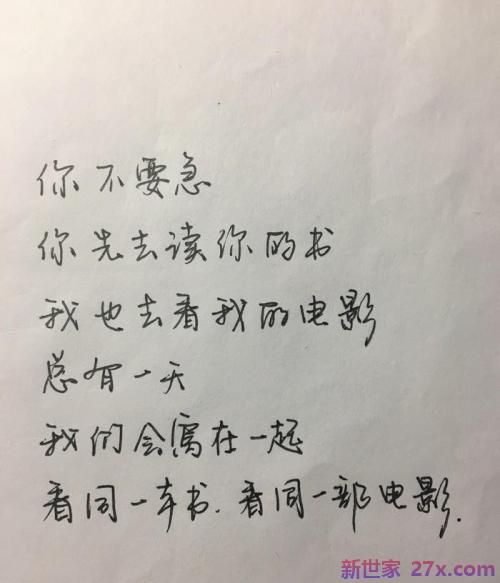 你不要急
你先去读你的书
我也去看我的电影
总有一天
我们会窝在一起
看同一本书.看同一部电影.
新世家 27x.com